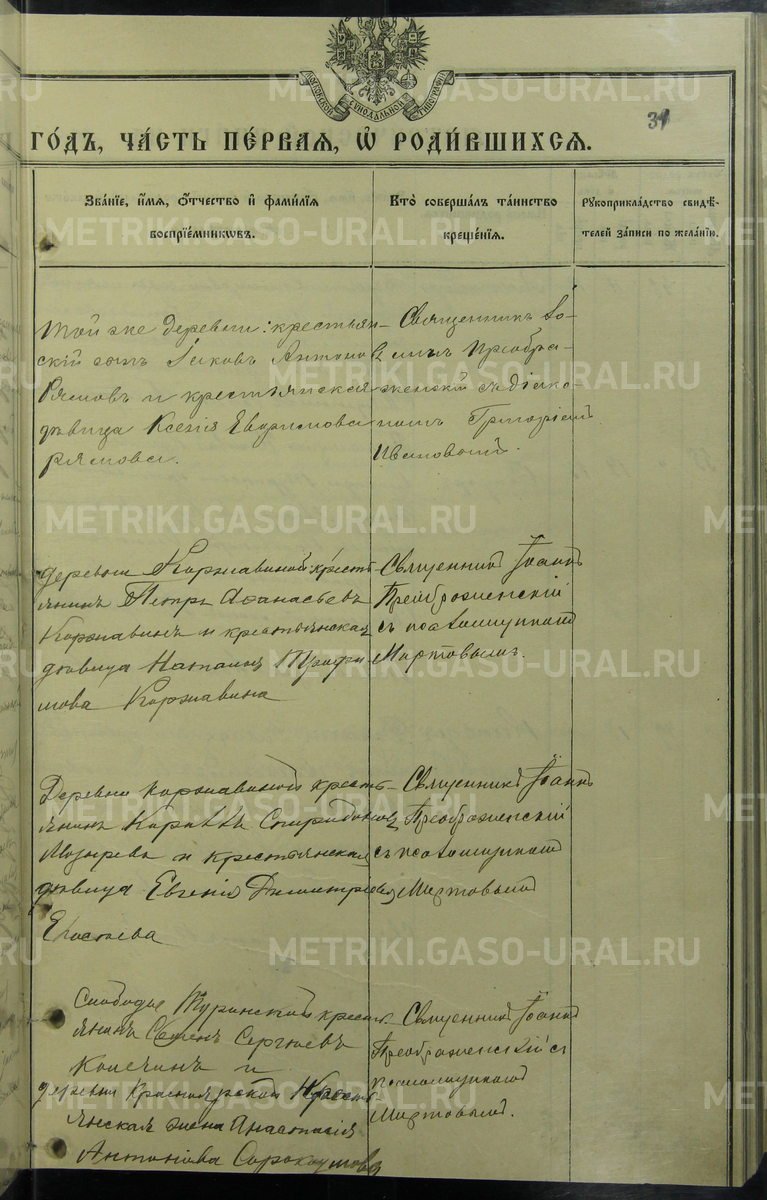 МОСКОВСКОЙ СѴНОДАЛЬНОЙ ТИПОГРАФІИ
31
ГО́ДЪ, ЧА́СТЬ ПЕ́РВАЯ, Ѡ҆ РОДИ́ВШИХСЯ.
Зва́нїе, и҆́мя, ѻ҆́тчество и҆ фами́лїя
воспрїе́мникѡвъ.
Кто̀ соверша́лъ та́инство
креще́нїя.
Рꙋкоприкла́дство свидѣ́-
телей за́писи по жела́нїю.
Той же деревни: крестьян-
скій сынъ Іаковъ Антонов
Рямовъ и крестьянская
дѣвица Ксенія Евфимова
Рямова.
Священникъ Іо-
аннъ Преобра-
женскій съ діако-
номъ Григоріемъ
Ивановымъ.
деревни Коржавиной крестъ
янинъ Петръ Афанасьевъ
Коржавинъ и крестьянская
дѣвица Наталия Трофи-
мова Коржавина
Священникъ Іоаннъ
Преображенскій
съ псаломщикомъ
Мартовымъ.
Деревни Коржавиной кресть-
янинъ Спиридонов
и крестьянская
дѣвица Евгенія Димитріева
Священникъ Іоаннъ
Преображенскій
съ псаломщикомъ
Мартовымъ
Слободы Туринской кресть-
янинъ Семенъ Сергѣевъ
и
деревни Красноярской Кресть
янская жена Анастасія
Антонова Сорокоумова
Священникъ Іоаннъ
Преображенскій съ
псаломщикомъ
Мартовымъ.
METRIKI.GASO-URAL.RU